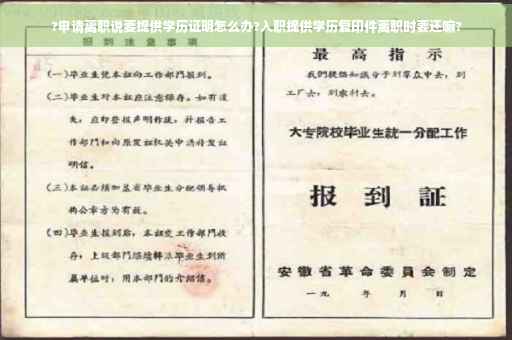 ?申请离职说要提供学历证明怎么办?入职提供学历复印件离职时要还嘛?
报到注意事项
(一)毕业生凭本证向工作部门报到。
(二)毕业生对本证应注意保存。如有遗
失,应即登报声明作废,并报告工
作部门和向原发证机关申请补发证
明信。
(三)本证必须加盖省毕业生分配领导机
构公章方为有效。
(四)毕业生报到后,本证交工作部门收
存;上级部门继续转派毕业生到所
属单位时,用本部门的介绍信。
最高指示
我们提倡知识分子到群众中去,到
工厂去,到农村去。
大专院校毕业生統一分配工作
报到証
安徽省革命委員会制定
一九 年 月 日